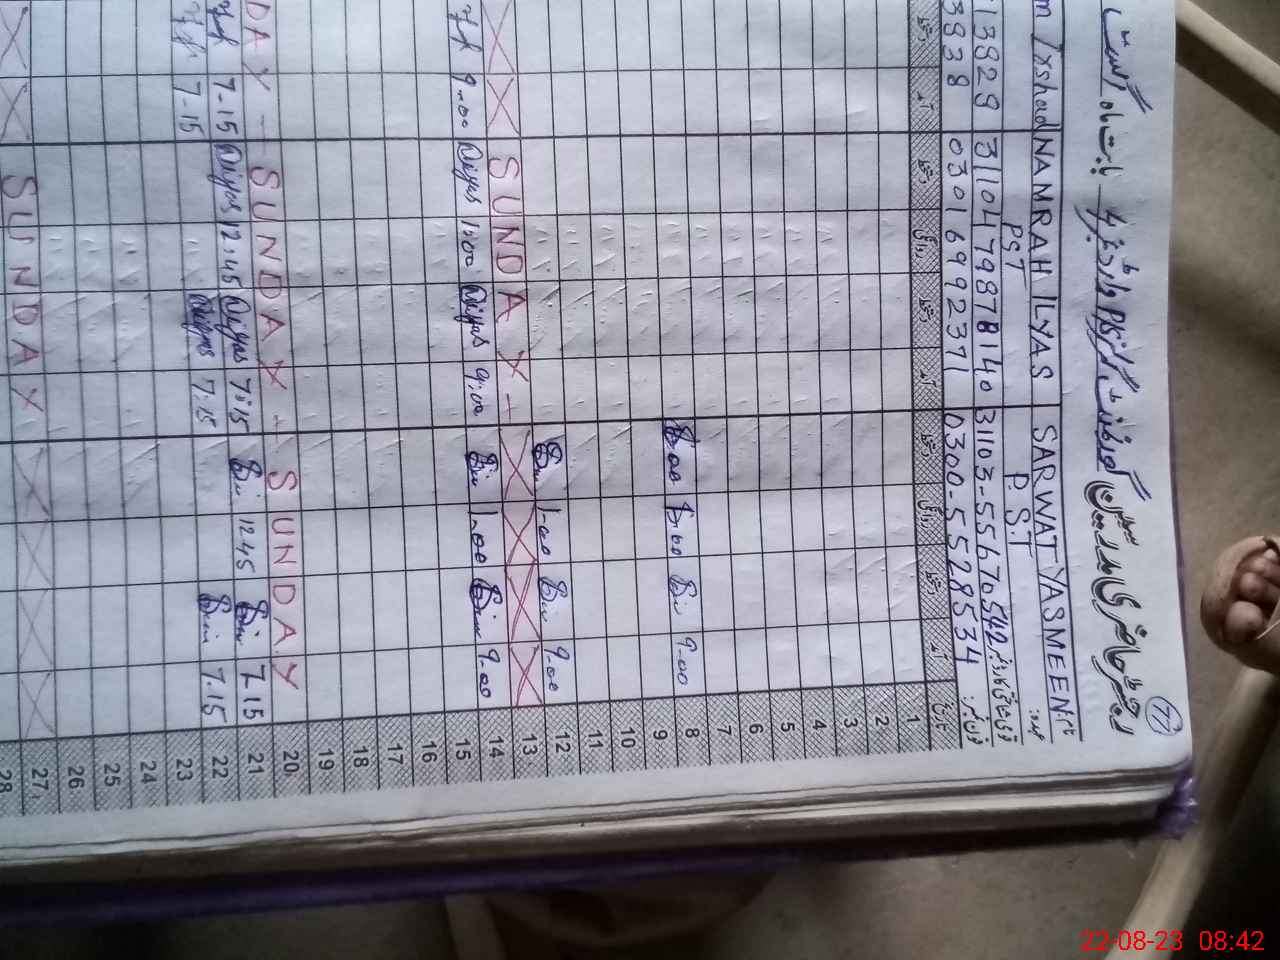 77
رجسٹر حاضری مدرسین گورنمنٹ گرلز بابت ماہ اگست
m Irshad NAMRAH ILYAS SARWAT YASMEEN نام
PST P.S.T عہدہ
13829 31104 1798778140 31103-5567054-2 قومی شناختی کارڈ نمبر
3838 0301 6992371 0300-5528534 فون نمبر
دستخط آمد دستخط روانگی دستخط آمد دستخط روانگی دستخط آمد تاریخ
1
2
3
4
5
6
7
9-00 8
9
10
11
1-00 9-00 12
SUNDAY 13
9-00 1:00 9:00 1-00 9-00 14
15
16
17
18
19
DAY - SUNDAY - SUNDAY 20
7-15 12:45 7:15 12 45 7 15 21
7-15 7:15 7.15 22
23
24
25
26
SUNDAY 27
28
22-08-23 08:42